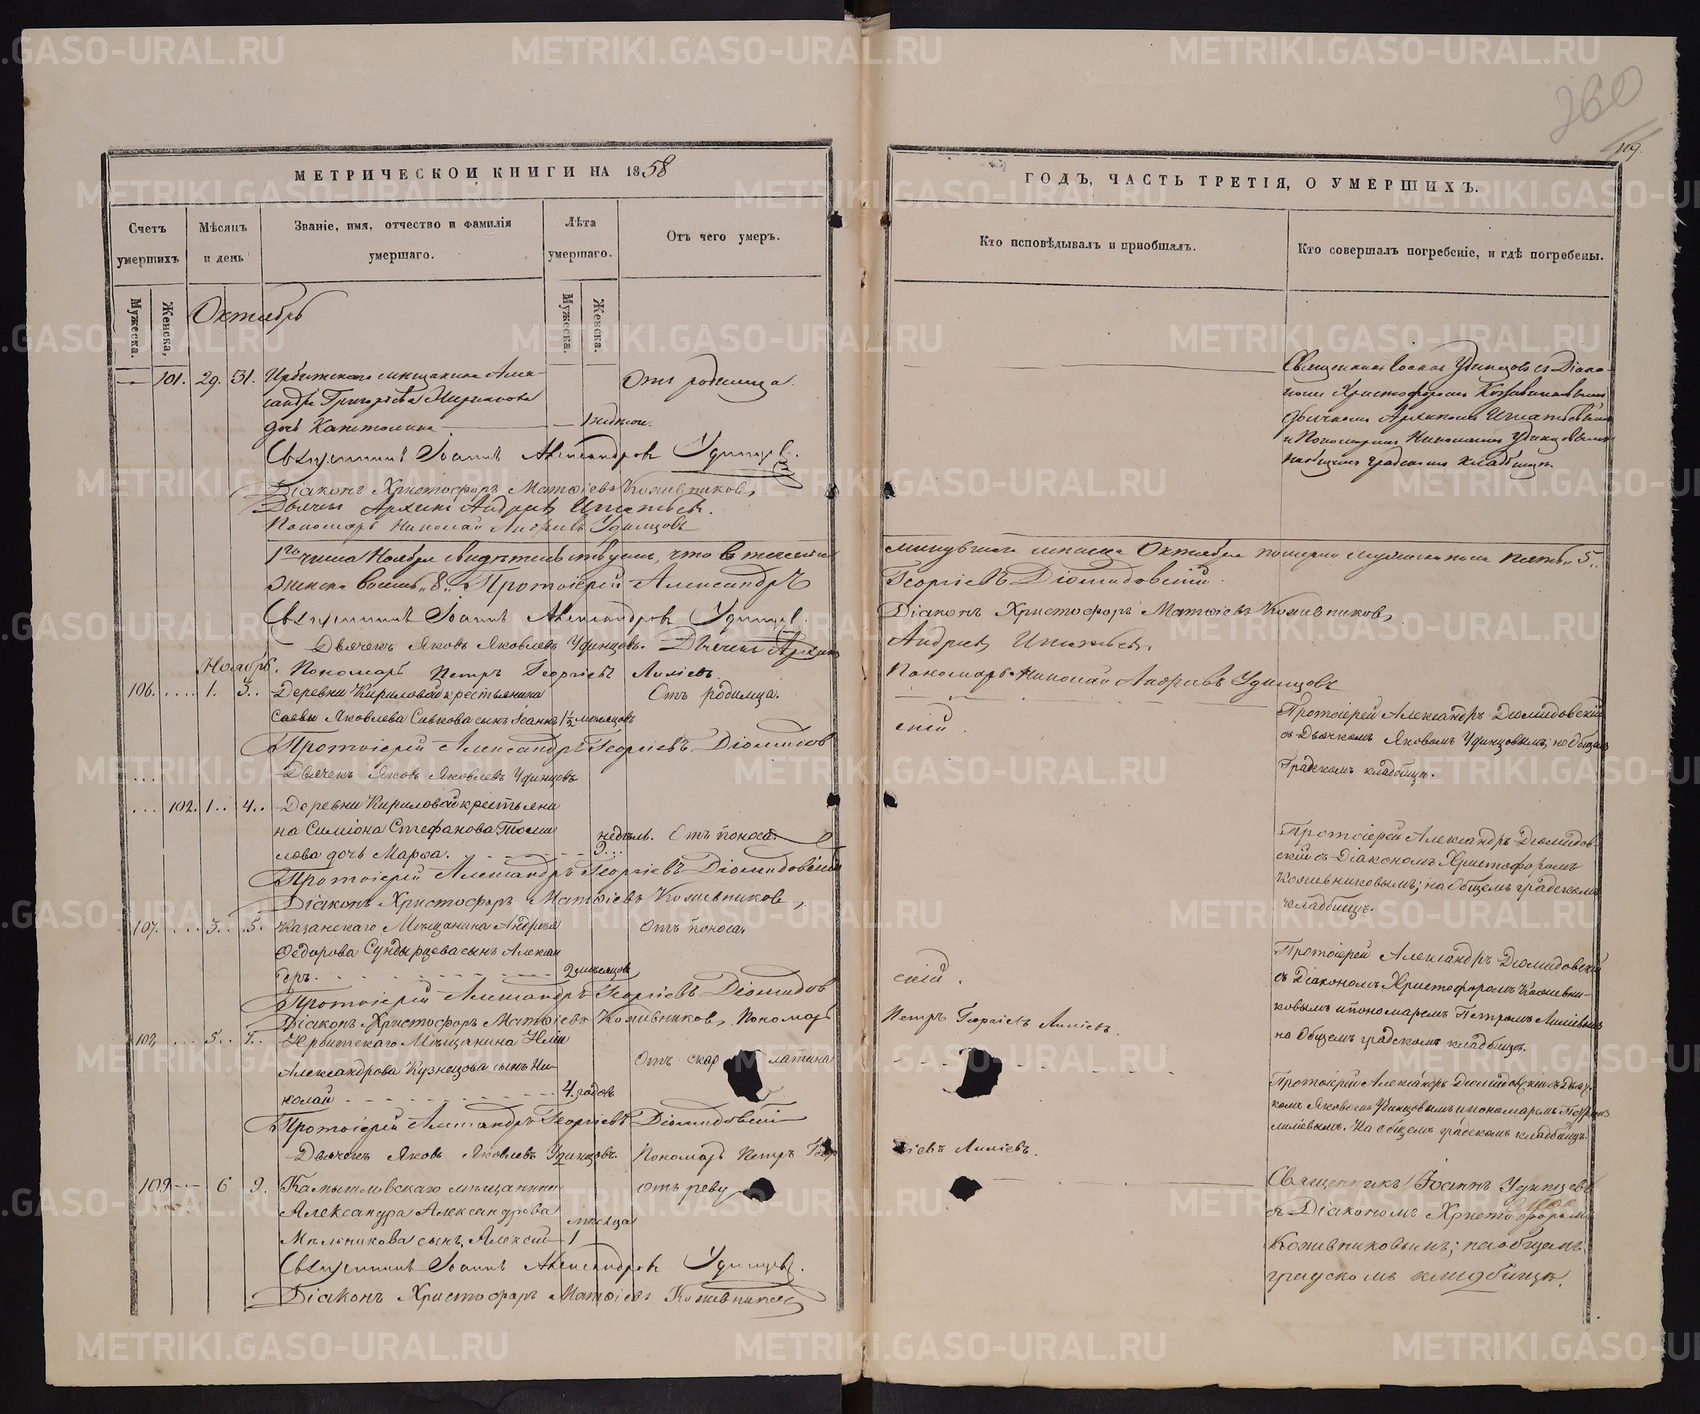 260
109.
МЕТРИЧЕСКОЙ КНИГИ НА 1858
ГОДЪ, ЧАСТЬ ТРЕТІЯ, О УМЕРШИХЪ.
Счетъ умершихъ
Мѣсяцъ и день
Званіе, имя, отчество и фамилія умершаго.
Лѣта умершаго.
Отъ чего умеръ.
Кто исповѣдывалъ и пріобщалъ.
Кто совершалъ погребеніе, и гдѣ погребены.
Мужеска.
Женска.
Мужеска.
Женска.
Октябрь
101. 29. 31. Ирбитскаго мещанина Алек-
сандра Григорьева
дочь Капитолина
Отъ родимца.
Священникъ Іоаннъ Удинцовъ съ Діако-
номъ Христофоромъ Кожевниковымъ
дьячкомъ Архипомъ Игнатьевымъ
и Пономаремъ Николаемъ Удинцовымъ
на общемъ градскомъ кладбищѣ.
Священникъ Іоаннъ Александровъ Удинцевъ.
Діаконъ Христофоръ Матѳіевъ Кожевниковъ,
Дьячекъ Архипъ Андреевъ Игнатьевъ.
Пономарь Николай Андреевъ Удинцовъ
1го числа Ноября свидѣтельствуемъ, что въ теченіи
минувшаго мѣсяца Октября померло мужеска пола пять „5„
женска восемь „8„ Протоіерей Александръ
Георгіевъ Діомидовскій.
Священникъ Іоаннъ Александровъ Удинцевъ.
Діаконъ Христофоръ Матѳіевъ Кожевниковъ,
Дьячекъ Яковъ Яковлевъ Удинцовъ. Дьячекъ Архипъ
Андреевъ Игнатьевъ.
Ноябрь. Пономарь Петръ Георгіевъ Лиліевъ
Пономарь Николай Андреевъ Удинцовъ
106. 1. 3. Деревни Кириловой крестьянина
Савы Яковлева Сивкова сынъ Іоаннъ 1½ мѣсяцовъ
Отъ родимца.
Протоіерей Александръ Діомидовскій
съ Дьячкомъ Яковомъ Удинцовымъ; на Общемъ
Градскомъ кладбищѣ.
Протоіерей Александръ Георгіевъ Діомидов
скій.
Дьячекъ Яковъ Яковлевъ Удинцовъ
102. 1. 4. Деревни Кириловой крестьяни
на Симіона Стефанова
дочь Марѳа.
недѣль.
Отъ поноса.
Протоіерей Александръ Діомидов-
скій съ Діакономъ Христофоромъ
Кожевниковымъ; на Общемъ градскомъ
кладбищѣ.
Протоіерей Александръ Георгіевъ Діомидовскій
Діаконъ Христофоръ Матѳіевъ Кожевниковъ,
107. 3. 5. Казанскаго Мѣщанина Андрея
Ѳедорова Сундырцева сынъ Алексан
дръ.
2 мѣсяцовъ
Отъ поноса.
Протоіерей Александръ Діомидовскій
съ Діакономъ Христофоромъ Кожевни-
ковымъ и пономаремъ Петромъ Лиліевымъ
на Общемъ градскомъ кладбищѣ.
Протоіерей Александръ Георгіевъ Діомидов
скій.
Діаконъ Христофоръ Матѳіевъ Кожевниковъ, Пономарь
Петръ Георгіевъ Лиліевъ.
108 5. 7. Ирбитскаго Мѣщанина
Александрова Кузнецова сынъ Ни-
колай
4. годовъ
Отъ скар латина
Протоіерей Александръ Діомидовскій съ Дьяч-
комъ Яковомъ Удинцовымъ и пономаремъ Петромъ
Лиліевымъ. На общемъ градскомъ кладбищѣ.
Протоіерей Александръ Георгіевъ Діомидовскій
Дьячекъ Яковъ Яковлевъ Удинцовъ. Пономарь Петръ Геор
гіевъ Лиліевъ.
109 6 9. Камышловскаго мѣщанина
Александра Александрова
Мельникова сынъ Алексій
мѣсяца
1
отъ реву
Священникъ Іоаннъ Удинцевъ
съ Діакономъ Христофоромъ
Кожевниковымъ; на общемъ
градскомъ кладбищѣ.
Священникъ Іоаннъ Александровъ Удинцевъ.
Діаконъ Христофоръ Матѳіевъ Кожевниковъ
METRIKI.GASO-URAL.RU